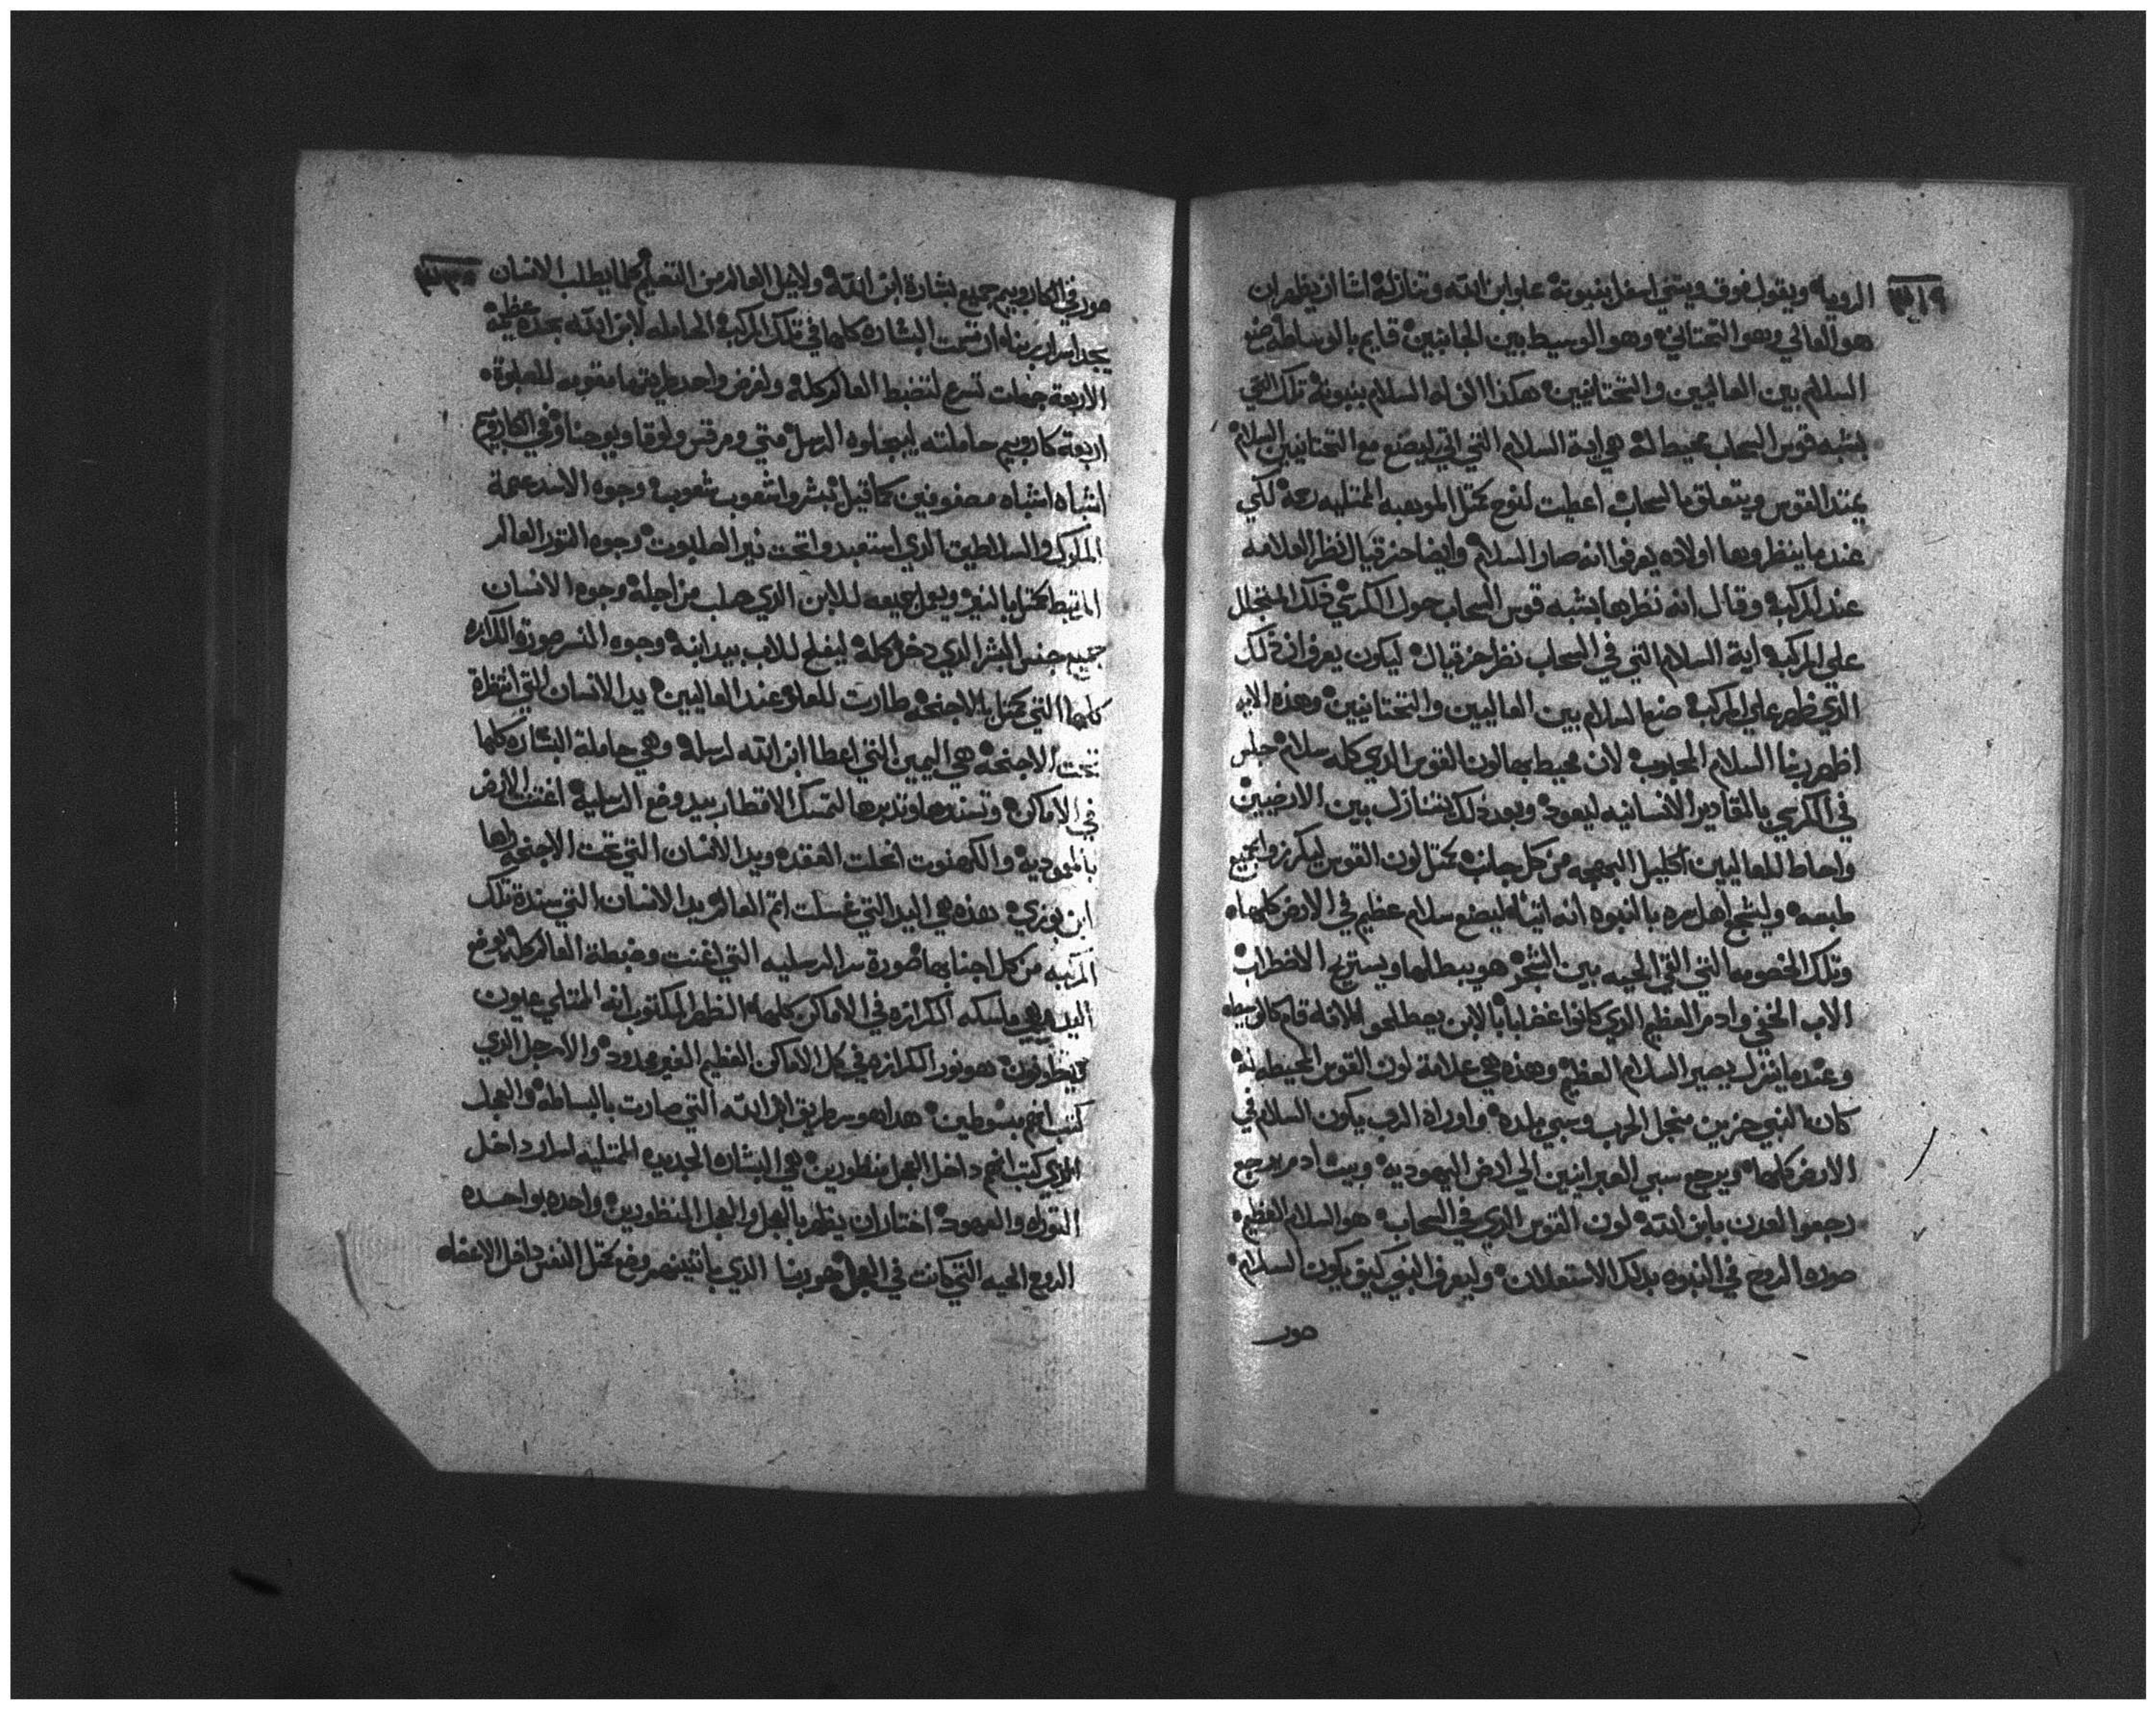 الرويا ويقول فوق ويتني اسفل بنبوته علو ابن الله وتنازلة انشا ان يظهر ان
هو العالي وهو التحتاني وهو الوسيط بين الجانبين قايم بالوساطه صنع
السلام بين العاليين والتحتانيين هكذا اله السلام بنبونة تلك التي
بشبه قوس السحاب محيط له هي اية السلام التي اتي ليصنع مع التحتانيين السلام
يمتد القوس ويتعلق بالسحاب اعطيت لنوح بمتل الموهبه الممتليه رحمة لكي
عندما ينظروها اولاده يعرفوا انه صار السلام وايضا حزقيال نظر العلامه
عند المركبة وقال انه نظرها بشبه قوس السحاب حول الكرسي ذلك المتجلل
علي المركبة اية السلام التي في السحاب نظر حزقيال ليكون يعرف ان ذلك
الذي ظهر علي المركبة صنع السلام بين العاليين والتحتانيين وهذه الايه
اظهر ربنا السلام المحبوب لان محيط بها لون القوس الذي كله سلام جلس
في الكرسي بالمقادير الانسانيه ليعود وبعد ذلك يتنازل بين الارضيين
واحاط للعاليين اكليل البهجه من كل جانب بمتل لون القوس ليكرزوا بجميع
طبعه وليشجع اهل سره بالنبوه انه اتيا ليصنع سلام عظيم في الارض كلها
وتلك الخصومه التي القي الحيه بين الشجر هو يبطلها ويستريح الاضطراب
الاب الخفي وادم العظيم الذي كانوا غضابا بالابن يصطلحوا لانه قام كالوسيط
وعندما ينزل يصير السلام العظيم وهذه هي علامة لون القوس المحيطه به
كان النبي حزين من اجل الحرب وسبي بلده واوراه الرب يكون السلام في
الارض كلها ويرجع سبي العبرانيين الي ارض اليهوديه وبيت ادم يرجع
رجعوا لعدن بابن الله لون القوس الذي في السحاب هو السلام العظيم
صوره الروح في النبوه بذلك الاستعلان وليعرف النبي كيف يكون السلام
صور
صور في الكاروبيم جميع بشارة ابن الله ولاجل العالم من التعليم كلما يطلب الانسان
يجد اسرار ربنا ارتسمت البشاره كلها في تلك المركبة الحامله لابن الله بمجد عظيمة
الاربعة جهات تسرع لتضبط العالم كله ولغرض واحد طريقها مقومه للصلبوة
اربعة كاروبيم حاملته ليجعلوه الرسل متي ومرقس ولوقا ويوحنا وفي الكاروبيم
اشباه اشباه مصفوفين كما قيل بشروا شعوب شعوب وجوه الاسد عتمة
الملوك والسلاطين الذي استعبدوا تحت نير الصلبوت وجوه التور العالم
المرتبط بمتل بالنير ويميل جميعه للابن الذي صلب من اجله وجوه الانسان
جميع جنس البشر الذي دخل كله ليفلح للاب بيد ابنه وجوه النسر صورة الكرازه
كلها التي بمتل بالاجنحه طارت للعلو عند العاليين يد الانسان التي انتظرة
تحت الاجنحة هي اليمين التي اعطا ابن الله لرسله وهي حاملة البشاره كلها
في الاماكن وتسندها وتدبرها لتمسك الاقطار بيد وضع الرسلية اغتنت الارض
بالمعموديه والكهنوت انحلت العقده ويد الانسان التي تحت الاجنحه راها
ابن بوزي هذه هي اليد التي غسلت اتم العالم يد الانسان التي سندة تلك
المركبه من كل اجنابها صورة سر الرسليه التي اغنت وضبطة العالم كله بوضع
اليد وهي ماسكه الكرازه في الاماكن كلها الظهر المكتوب انه الممتلي عيون
ينظرون هو نور الكرازه في كل الاماكن العظيم الغير محدود والارجل الذي
كتب انهم بسوطين هذا هو سر طريق ابن الله التي صارت بالبساطه والعجل
الذي كتب انهم داخل العجل منظورين هي البشاره الجديده الممتليه اسرار داخل
التوراه والعهود اختار ان يظهر بالعجل والعجل المنظورين واحده بواحده
الروح الحيه التي كانت في العجل هو ربنا الذي بمتل النفس داخل الاعضاء